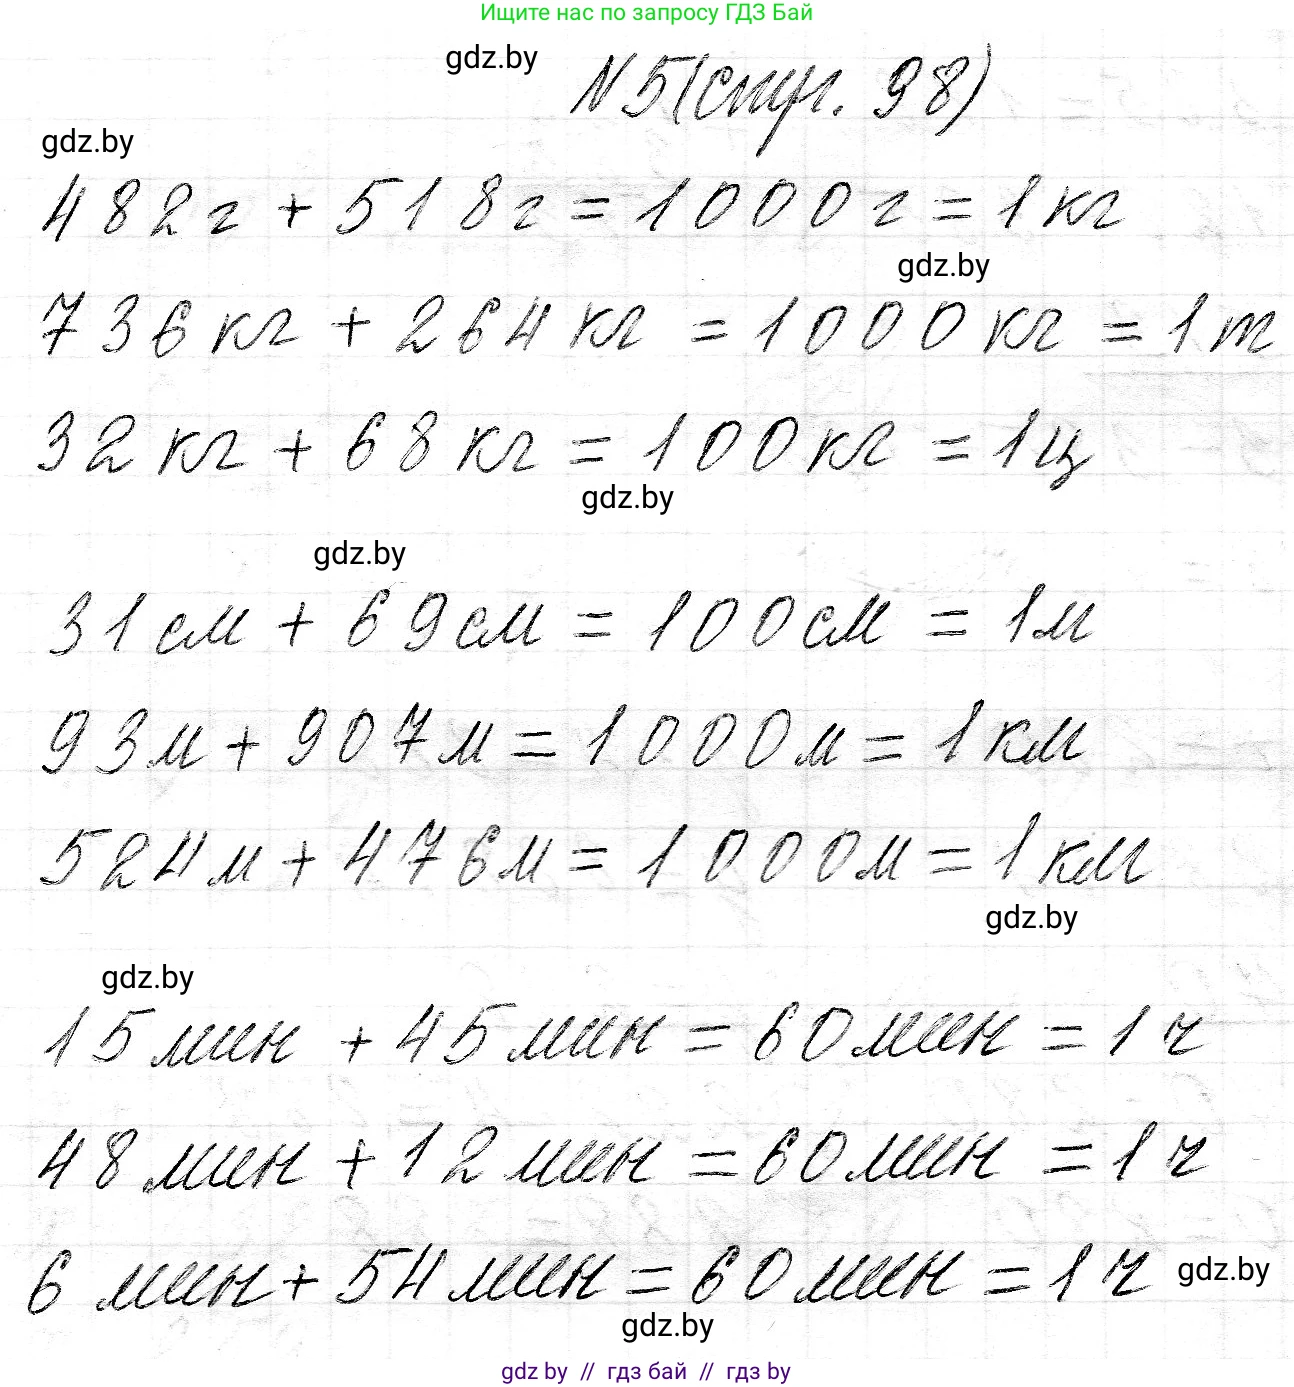 Ищите нас по запросу ГДЗ Бай
gdz.by
N5(стр. 98)
gdz.by
482г + 518г = 1000г = 1кг
gdz.by
736кг + 264кг = 1000кг = 1т
32кг + 68кг = 100кг = 1ц
gdz.by
gdz.by
31см + 69см = 100см = 1м
93м + 907м = 1000м = 1км
524м + 476м = 1000м = 1км
gdz.by
gdz.by
15мин + 45мин = 60мин = 1ч
48мин + 12мин = 60мин = 1ч
6 мин + 54мин = 60мин = 1ч
gdz.by
gdz.by
gdz by // гдз бай // гдз by